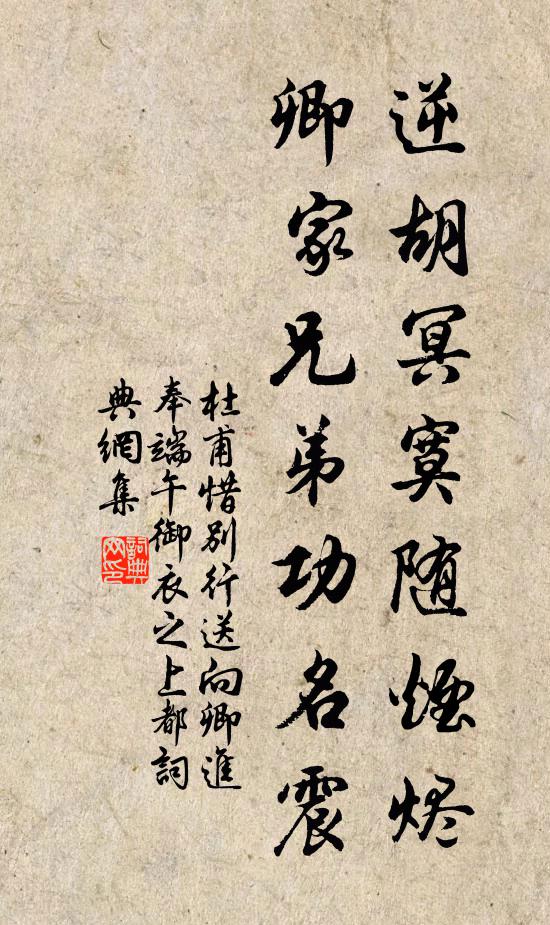 逆胡冥寞随煙烬
卿家兄弟功名震
杜甫惜别行送向卿進
奉端午御衣之上都詞
典網集
詞典
网印